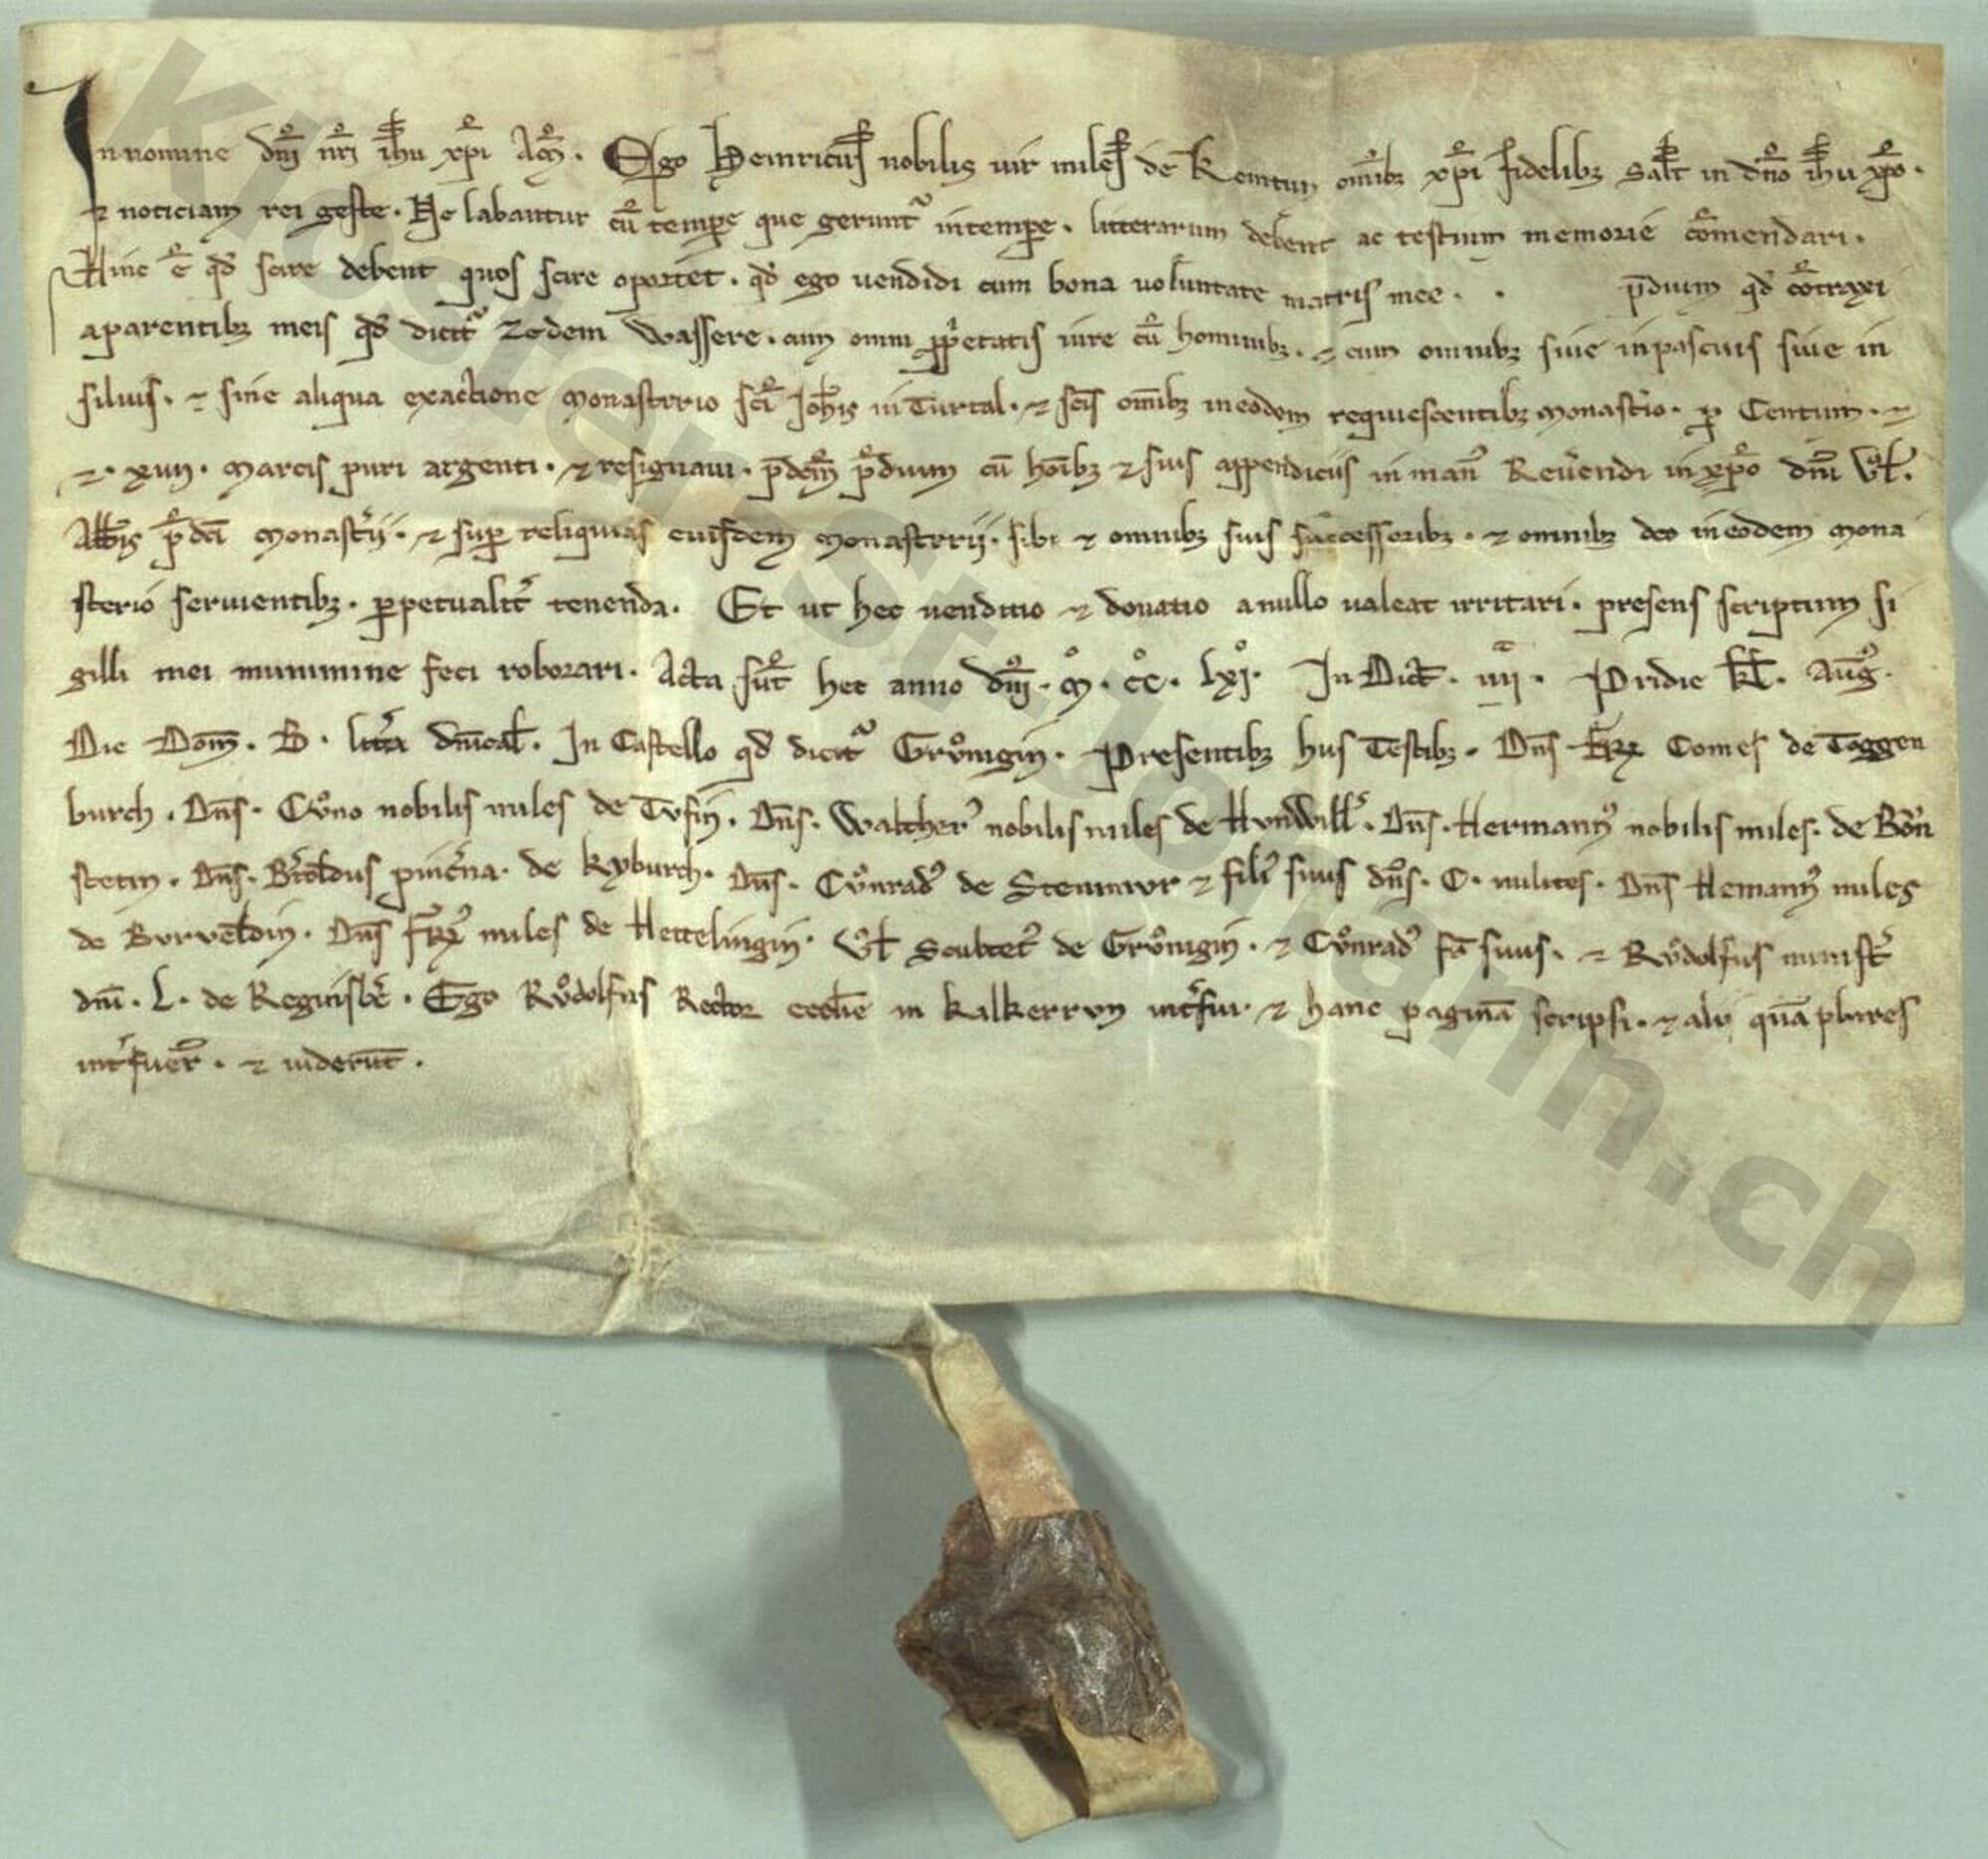 In nomine dn̄i nr̄i ih̄u xp̄i Am̄. Ego Heinricus nobilis uir miles de Kemtun om̄ibꝫ xp̄i fidelibꝫ Salt̄ in dn̄o ih̄u xp̄o.
⁊ noticiam rei geste. Ne labantur cū temꝑe que gerunt᷑ in temꝑe. litterarum debent ac testium memorie cōmendari.
Hinc ē qd̄ scire debent quos scire oportet. qd̄ ego uendidi cum bona uoluntate matris mee. . p̄dium qd̄ cōtraxi
a parentibꝫ meis qd̄ dicit᷑ zedem Wassere. cum omni ꝓp̍etatis iure cū hominibꝫ. ⁊ cum omnibꝫ siue in pascuis siue in
siluis. ⁊ sine aliqua exactione monasterio sc̄i Joh̄is in Turtal. ⁊ sc̄is om̄ibꝫ in eodem requiescentibꝫ monast̍io. ꝑ Centum. ⁊
⁊. xiiii. marcis puri argenti. ⁊ resignaui. p̄dcm̄ p̄dium cū hoībꝫ ⁊ suis appendiciis in man᷒ Reu̍endi in xp̄o dn̄i Vͦl̄.
Abb̄is p̄dc̄i monast̍ii. ⁊ suꝑ reliquias eiusdem monasterij. sibi ⁊ omnibꝫ suis successoribꝫ. ⁊ omnibꝫ deo in eodem mona
sterio seruientibꝫ. ꝑpetualit̍ tenenda. Et ut hec uenditio ⁊ donatio a nullo ualeat irritari. presens scriptum si
gilli mei munimine feci roborari. Acta sūt hec anno dn̄i. mͦ. ccͦ. lxiͦ. In Dict̄. iiij. Pridie kl̄. Auḡ.
Die Dom̄. B. litt̍a dn̄ical̄. In Castello qd̄ dicit᷑ Grͦuͦnigin. Presentibꝫ hiis Testibꝫ. Dn̄s. Fr̄. Comes de Toggen
burch. Dn̄s. Cuͦno nobilis miles de Tvfin. Dn̄s. Walther᷒ nobilis miles de Hvnwill̍. Dn̄s. Hermann᷒ nobilis miles. de Bōn
stetin. Dn̄s. B̍toldus pinc̍na. de Kyburch. Dn̄s. Cuͦnrad᷒ de Steinmvr ⁊ fili᷒ suus dn̄s. C. milites. Dn̄s Hemann᷒ miles
de Bvrueldin. Dn̄s Fr̄. miles de Hettelingin. Vͦl̄ Scultet᷒ de Gruͦnigin. ⁊ Cuͦnrad᷒ fr̄ suus. ⁊ Ruͦdolfus minist̍
dn̄i. L. de Reginsb̍c. Ego Ruͦdolfus Rector eccl̄ie in kalkervn int̍fui. ⁊ hanc paginā scripsi. ⁊ alij quā plures
int̍fuer̄. ⁊ uiderūt.
Kloster-st-johann.ch